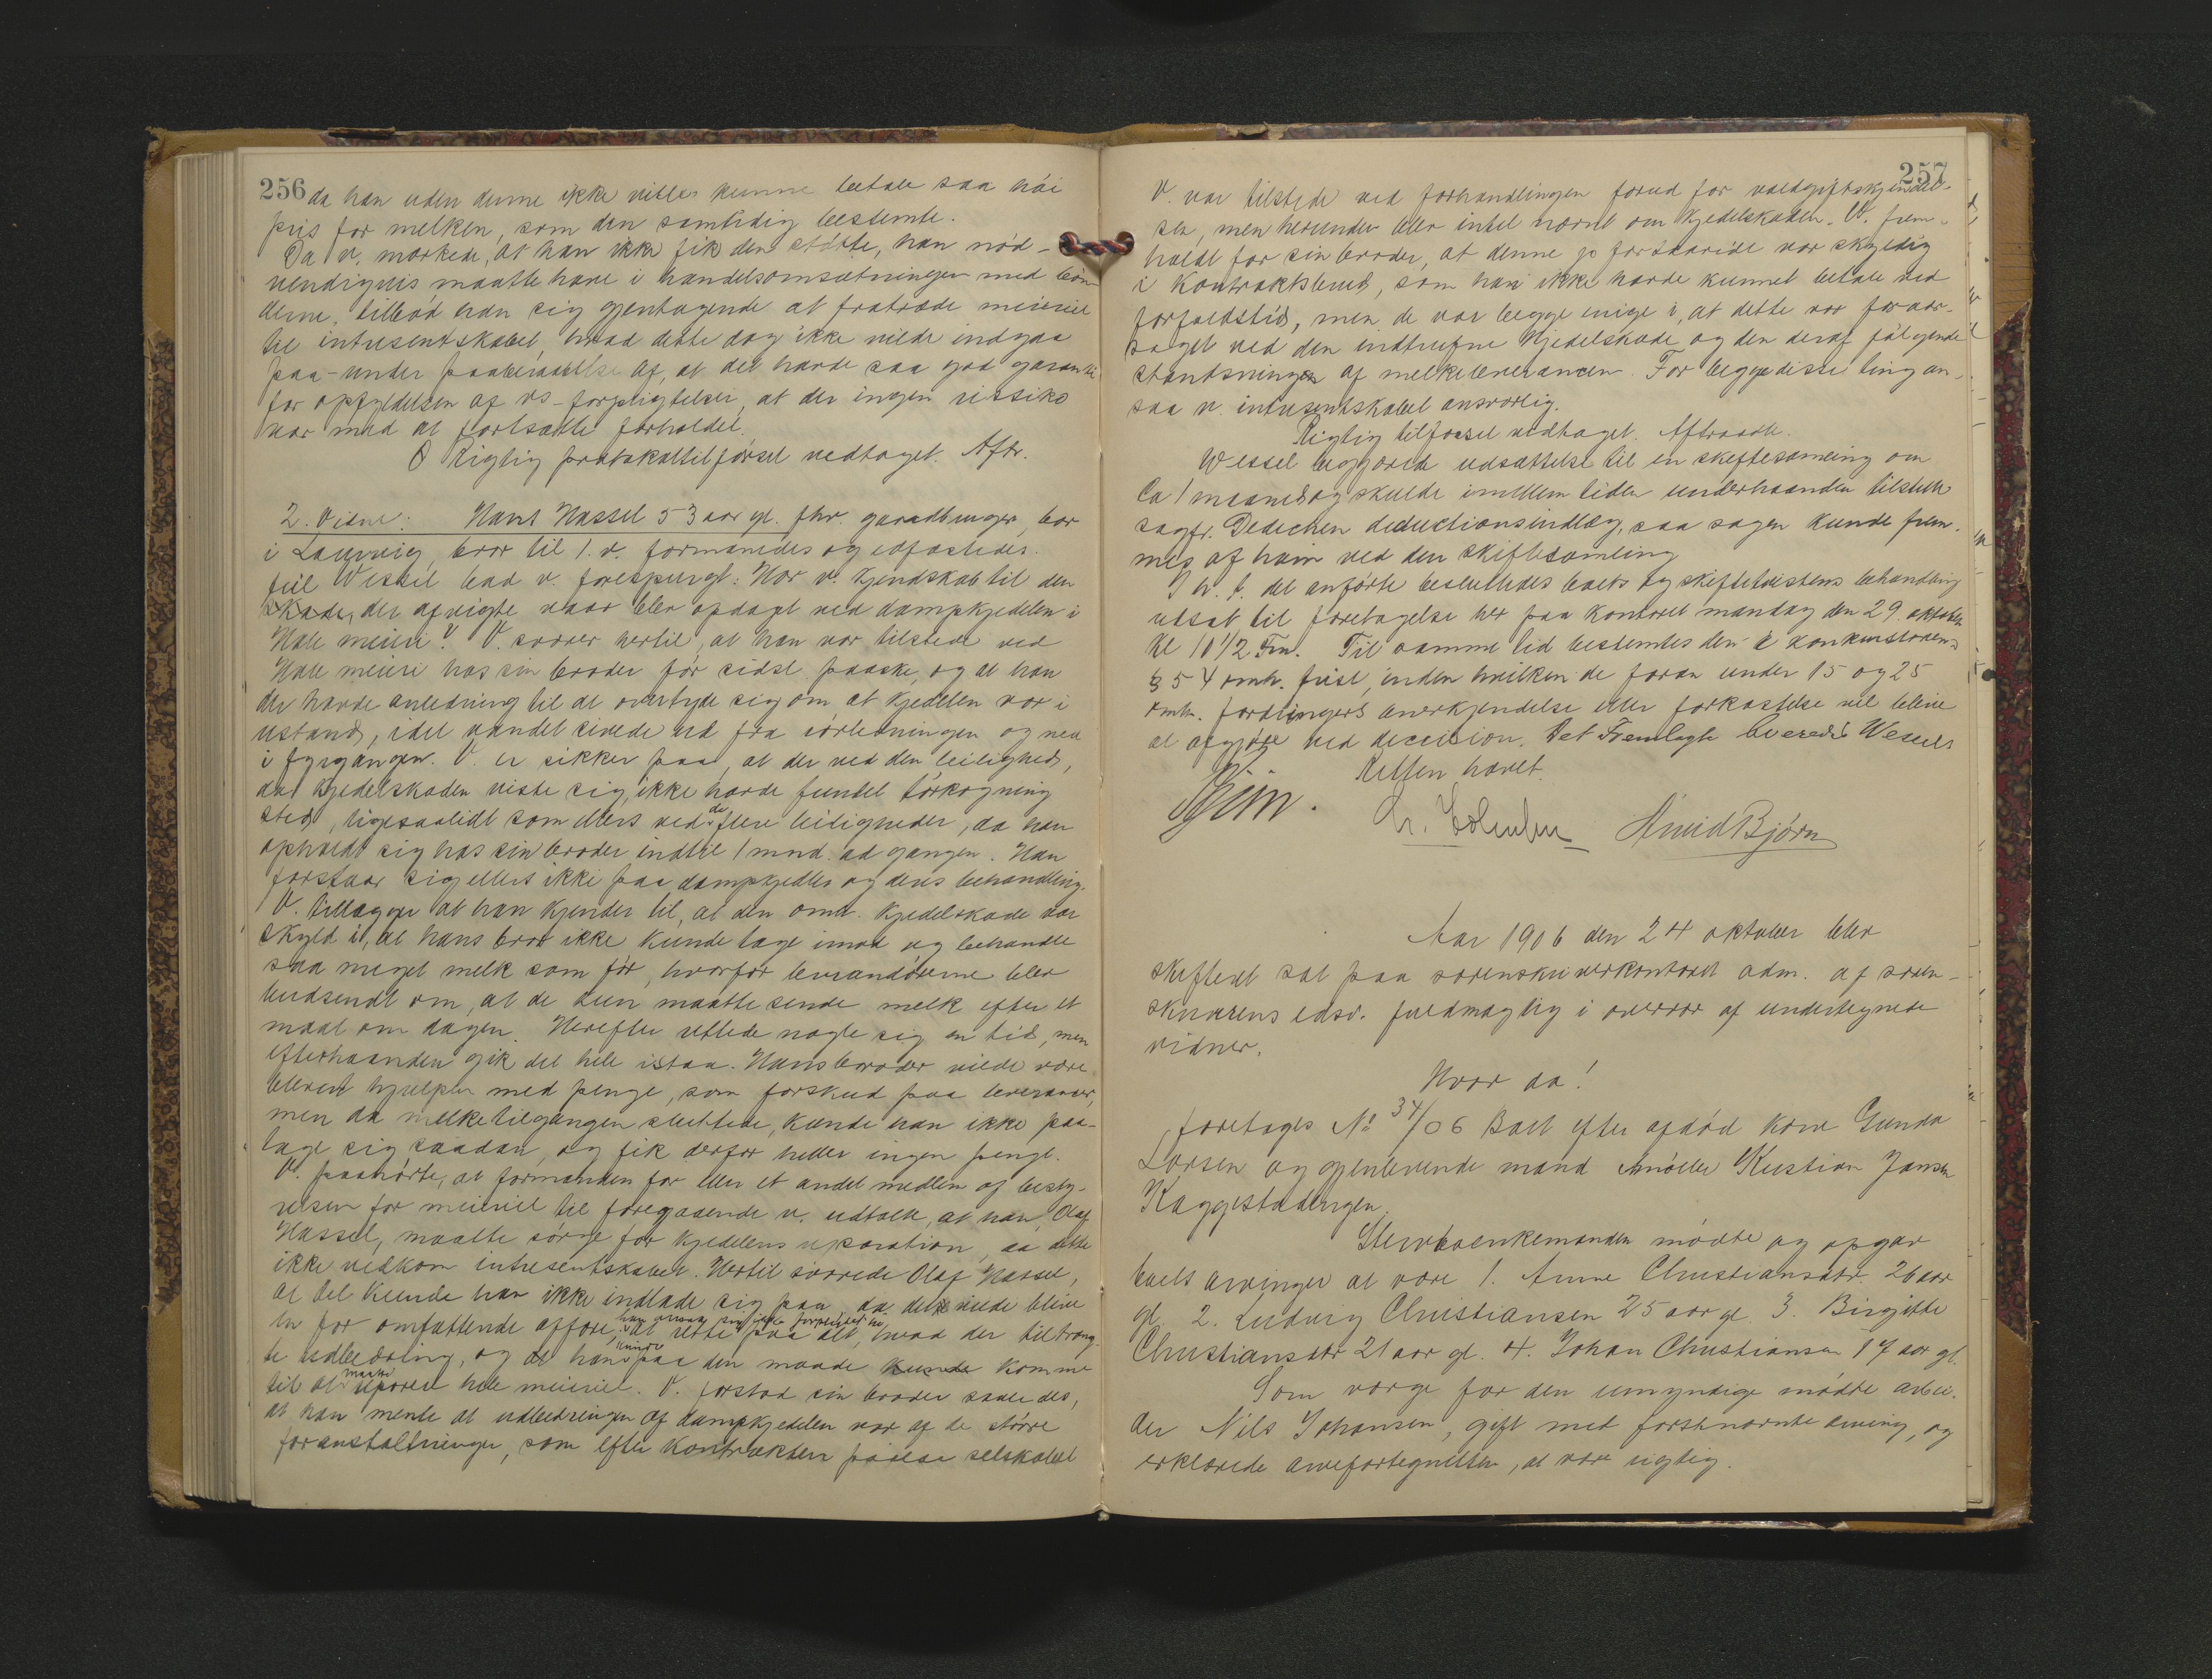 256 da han uden denne ikke vilde kunne betale saa høi
pris for melken, som den samtidig bestemte.
Da v. mærkede, at han ikke fik den støtte, han nød-
vendigvis maatte have i handelsomsætningen med bøn-
derne, tilbød han sig gjentagende at fratræde meieriet
til intresentskabet, hvad dette dog ikke vilde indgaa
paa – under paaberaabelse af, at det havde saa god garanti
for opfyldelsen af vs forpligtelser, at der ingen rissiko
var med at fortsætte forholdet.
Rigtig protokoltilførsel vedtaget. Aftr.
2. Vidne: Hans Hassel 53 aar gl. fhv. gaardbruger, bor
i Laurvig, bror til 1. v. formanedes og edfæstedes.
Wessel bad v. forespurgt: Har v. kjendskab til den
skade, der afvigte vaar blev opdaget ved dampkjedelen i
Hale meieri? V. svarer hertil, at han var tilstede ved
Hale meieri hos sin broder før sidst paaske, og at han
der havde anledning til at overtyde sig om at kjedelen var i
ustand, idet vandet sivede ud fra rørledningen og ned
i fyrgangen. V. er sikker paa, at der ved den leilighed,
da kjedelskaden viste sig, ikke havde fundet tørkogning
sted, ligesaalidt som ellers ved de flere leiligheder, da han
opholdt sig hos sin broder indtil 1 mnd. ad gangen. Han
forstaar sig ellers ikke paa dampkjedler og deres behandling.
V. tillægger at han kjender til, at den omh. kjedelskade var
skyld i, at hans bror ikke kunde tage imod og behandle
saa meget melk som før, hvorfor leverandørerne blev
budsendt om, at de kun maatte sende melk efter et
maal om dagen. Herefter rettede nogle sig en tid, men
efterhaanden gik det hele istaa. Hans broder vilde være
blevet hjulpen med penge, som forskud paa leverancer,
men da melketilgangen sluttede, kunde han ikke paa-
tage sig saadan, og fik derfor heller ingen penge.
V. paahørte, at formanden for eller et andet medlem af besty-
relsen for meieriet til foregaaende v. udtalte, at han, Olaf
Hassel, maatte sørge for kjedelens reparation, da dette
ikke vedkom intresentskabet. Hertil svarede Olaf Hassel,
at det kunde han ikke indlade sig paa, da det vilde blive
en for omfattende affære, han ansaa sig ikke forpligtet til at rette paa alt, hvad der tiltræng-
te udbedring, og at han kunde paa den maade kunde komme
til at maatte reparere hele meieriet. V. forstod sin broder saaledes,
at han mente at udbedringen af dampkjedelen var af de større
foranstaltninger, som efter kontrakten paalaa selskabet
257
V. var tilstede ved forhandlingen forud for voldgiftskjendel-
sen, men herunder blev intet nævnt om kjedelskaden. V. frem-
holdt for sin broder, at denne jo forsaavidt var skyldig
i kontraktsbrud, som han ikke havde kunnet betale ved
forfaldstid, men de var begge enige i, at dette var foraar-
saget ved den indtrufne kjedelskade og den deraf følgende
standsningen af melkeleverancen. For begge disse ting an-
saa v. intresentskabet ansvarlig.
Rigtig tilførsel vedtaget. Aftraadte.
Wessel begjærede udsættelse til en skiftesamling om
Ca 1 maaned og skulde imellem tiden underhaanden tilstille
sagf. Dedechen deductionsindlæg, saa sagen kunde frem-
mes af ham ved den skiftesamling
I h. t. det anførte besluttedes boets og skiftetvistens behandling
udsat til foretagelse her paa kontoret mandag den 29. oktober
kl 10 1/2 Fm. Til samme tid bestemtes den i konkurslovens
§ 54 omh. frist, inden hvilken de foran under 15 og 25
omh. fordringers anerkjendelse eller forkastelse vil blive
at afgjøre ved decision. Det Fremlagte leveredes Wessel
Retten hævet.
Arvid Bjørn
Aar 1906 den 24 oktober blev
skifteret sat paa sorenskriverkontoret adm. af soren-
skriverens edsv. fuldmægtig i overvær af undertegnede
vidner.
Hvor da!
foretoges No 34/06 Boet efter afdød kone Gunda
Larsen og gjenlevende mand møller Kristian Jansen
Kaggestadengen.
Stervboenkemanden mødte og opgav
boets arvinger at være 1. Anne Christiansdtr. 26 aar
gl. 2. Ludvig Christiansen 25 aar gl. 3. Birgitte
Christiansdtr 21 aar gl. 4. Johan Christiansen 17 aar gl.
Som værge for den umyndige mødte arbei-
der Nils Johansen, gift med førstnævnte arving, og
erklærede arvefortegnelsen, at være rigtig.